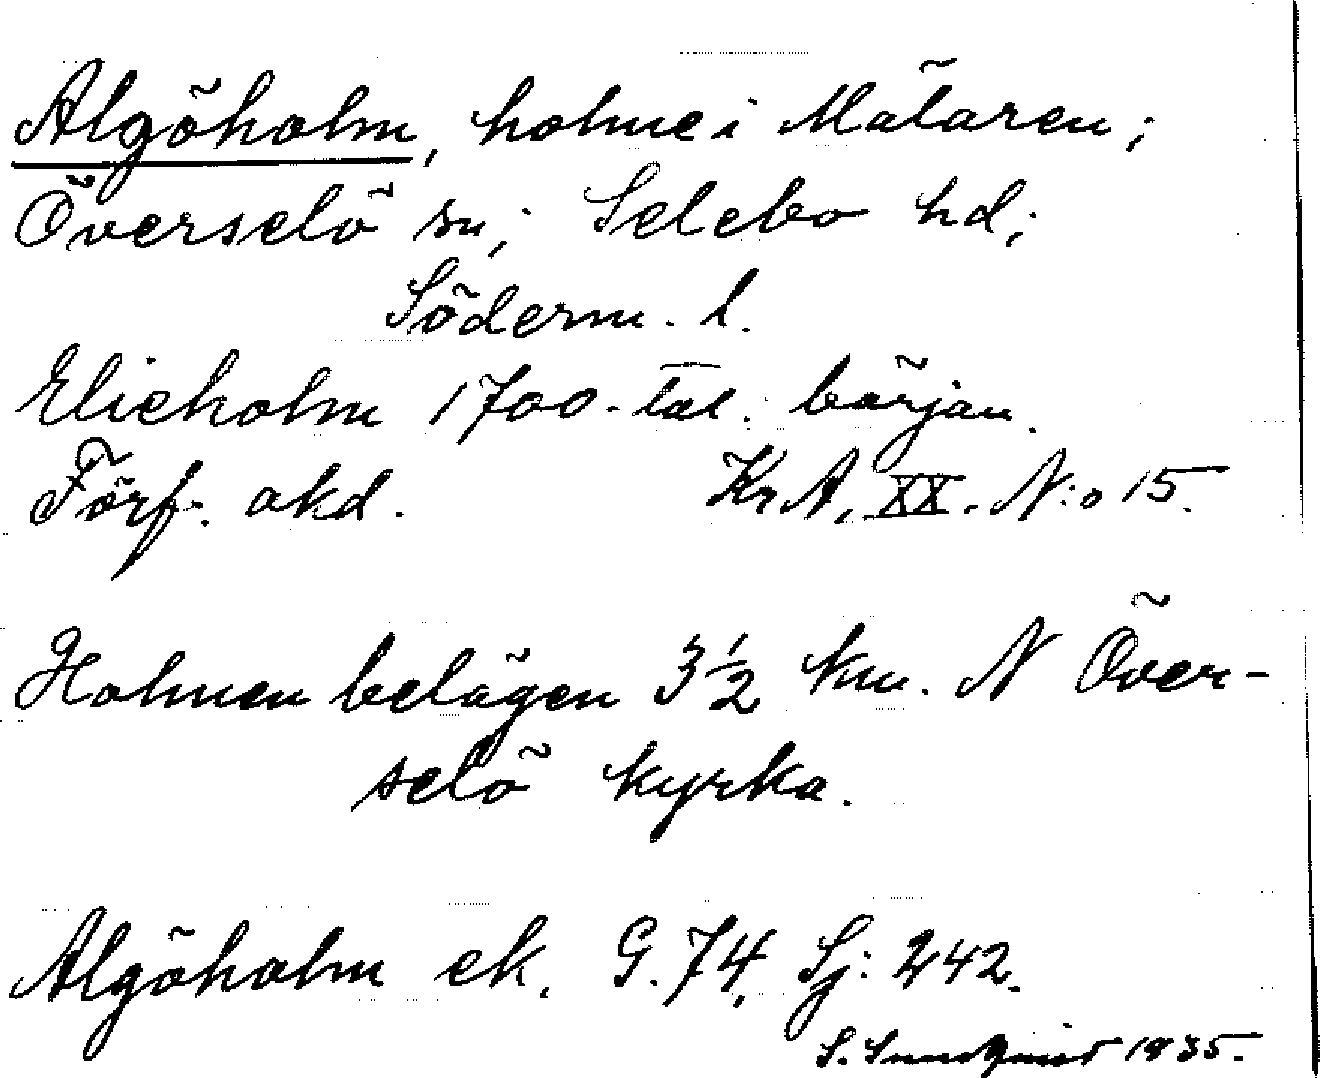 Algöholm, holme i Mälaren;
Överselö sn; Selebo hd;
Söderm. l.
Elieholm 1700-tal. början.
Förf. okd. Kr A, XX. N:o 15.
Holmen belägen 3 1/2 km. N Över-
selö kyrka.
Algöholm ek. G. 74, Sj: 242.
S. Sundqvist 1935.